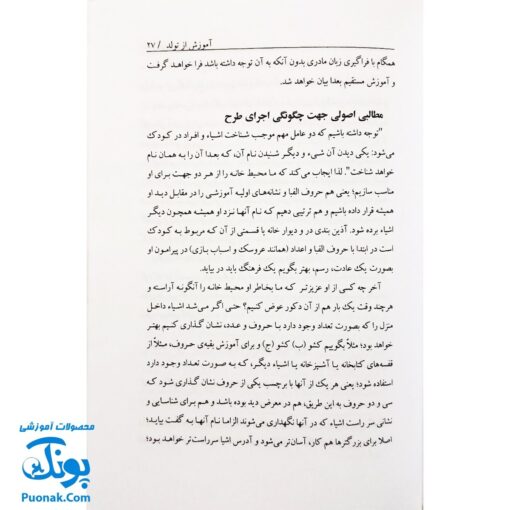 آموزش از تولد / ۲۷
همگام با فراگیری زبان مادری بدون آنکه به آن توجه داشته باشد فرا خواهد گرفت
و آموزش مستقیم بعدا بیان خواهد شد.
مطالبی اصولی جهت چگونگی اجرای طرح
"توجه داشته باشیم که دو عامل مهم موجب شناخت اشیاء و افراد در کودک
می‌شود: یکی دیدن آن شیء و دیگر شنیدن نام آن، که بعدا آن را به همان نام
خواهد شناخت". لذا ایجاب می‌کند که ما محیط خانه را از هر دو جهت برای او
مناسب سازیم؛ یعنی هم حروف الفبا و نشانه‌های اولیه آموزشی را در مقابل دید او
همیشه قرار داده باشیم و هم ترتیبی دهیم که نام آنها نزد او همیشه همچون دیگر
اشیاء برده شود. آذین بندی در و دیوار خانه با قسمتی از آن که مربوط به کودک
است در ابتدا با حروف الفبا و اعداد (همانند عروسک و اسباب بازی) در پیرامون او
بصورت یک عادت، رسم، بهتر بگویم یک فرهنگ باید در بیاید.
آخر چه کسی از او عزیزتر که ما بخاطر او محیط خانه را آنگونه آراسته و
هرچند وقت یک بار هم از آن دکور عوض کنیم؟ حتی اگر می‌شد اشیاء داخل
منزل را که بصورت تعداد وجود دارد با حروف و عدد، نشان گذاری کنیم بهتر
خواهد بود؛ مثلاً بگوییم کشو (ب) کشو (ج) و برای آموزش بقیه‌ی حروف، مثلاً از
قفسه‌های کتابخانه یا آشپزخانه یا اشیاء دیگر، که به صورت تعداد وجود دارد
استفاده شود؛ یعنی هر یک از آنها با برچسب یکی از حروف نشان گذاری شود که
سی و دو حروف به این طریق، هم در معرض دید بوده باشد و هم برای شناسایی و
نشانی سر راست اشیاء که در آنها نگهداری می‌شوند الزاما نام آنها به گفت بیاید؛
اصلا برای بزرگترها هم کار، آسان‌تر می‌شود و آدرس اشیا سرراست‌تر خواهد بود؛
محصولات آموزشی
پونک
Puonak.Com